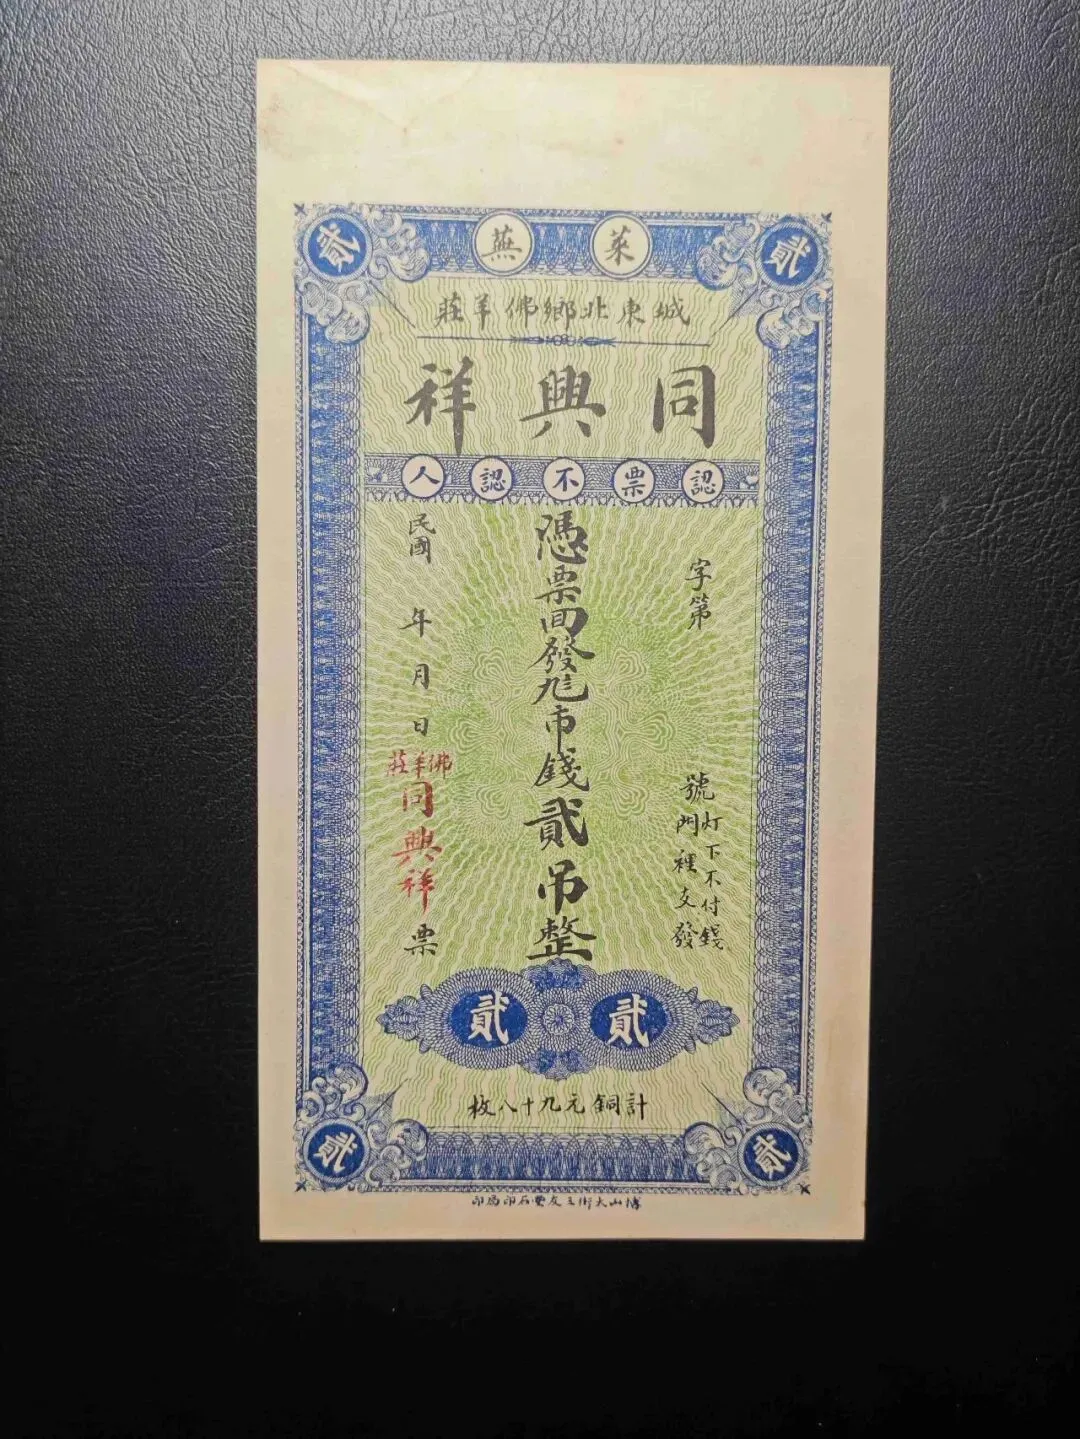 貳
貳
萊蕪
城東北鄉佛羊莊
同興祥
認票不認人
字第
號
灯下不付錢
門裡支發
憑票回發九
市錢貳吊整
民國
年月日
佛羊莊
同興祥
票
貳
貳
計銅元九十八枚
貳
貳
博山大街
石印局印